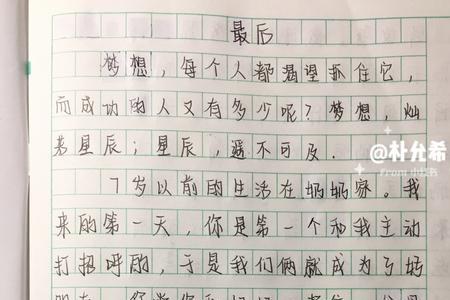 最后
梦想，每个人都渴望抓住它，
而成功的人又有多少呢？梦想，灿
若星辰；星辰，遥不可及．
@朴允希
7岁以前的生活在奶奶家。我
来的第一天，你是第一个和我主动
打招呼的，于是我们俩就成为了